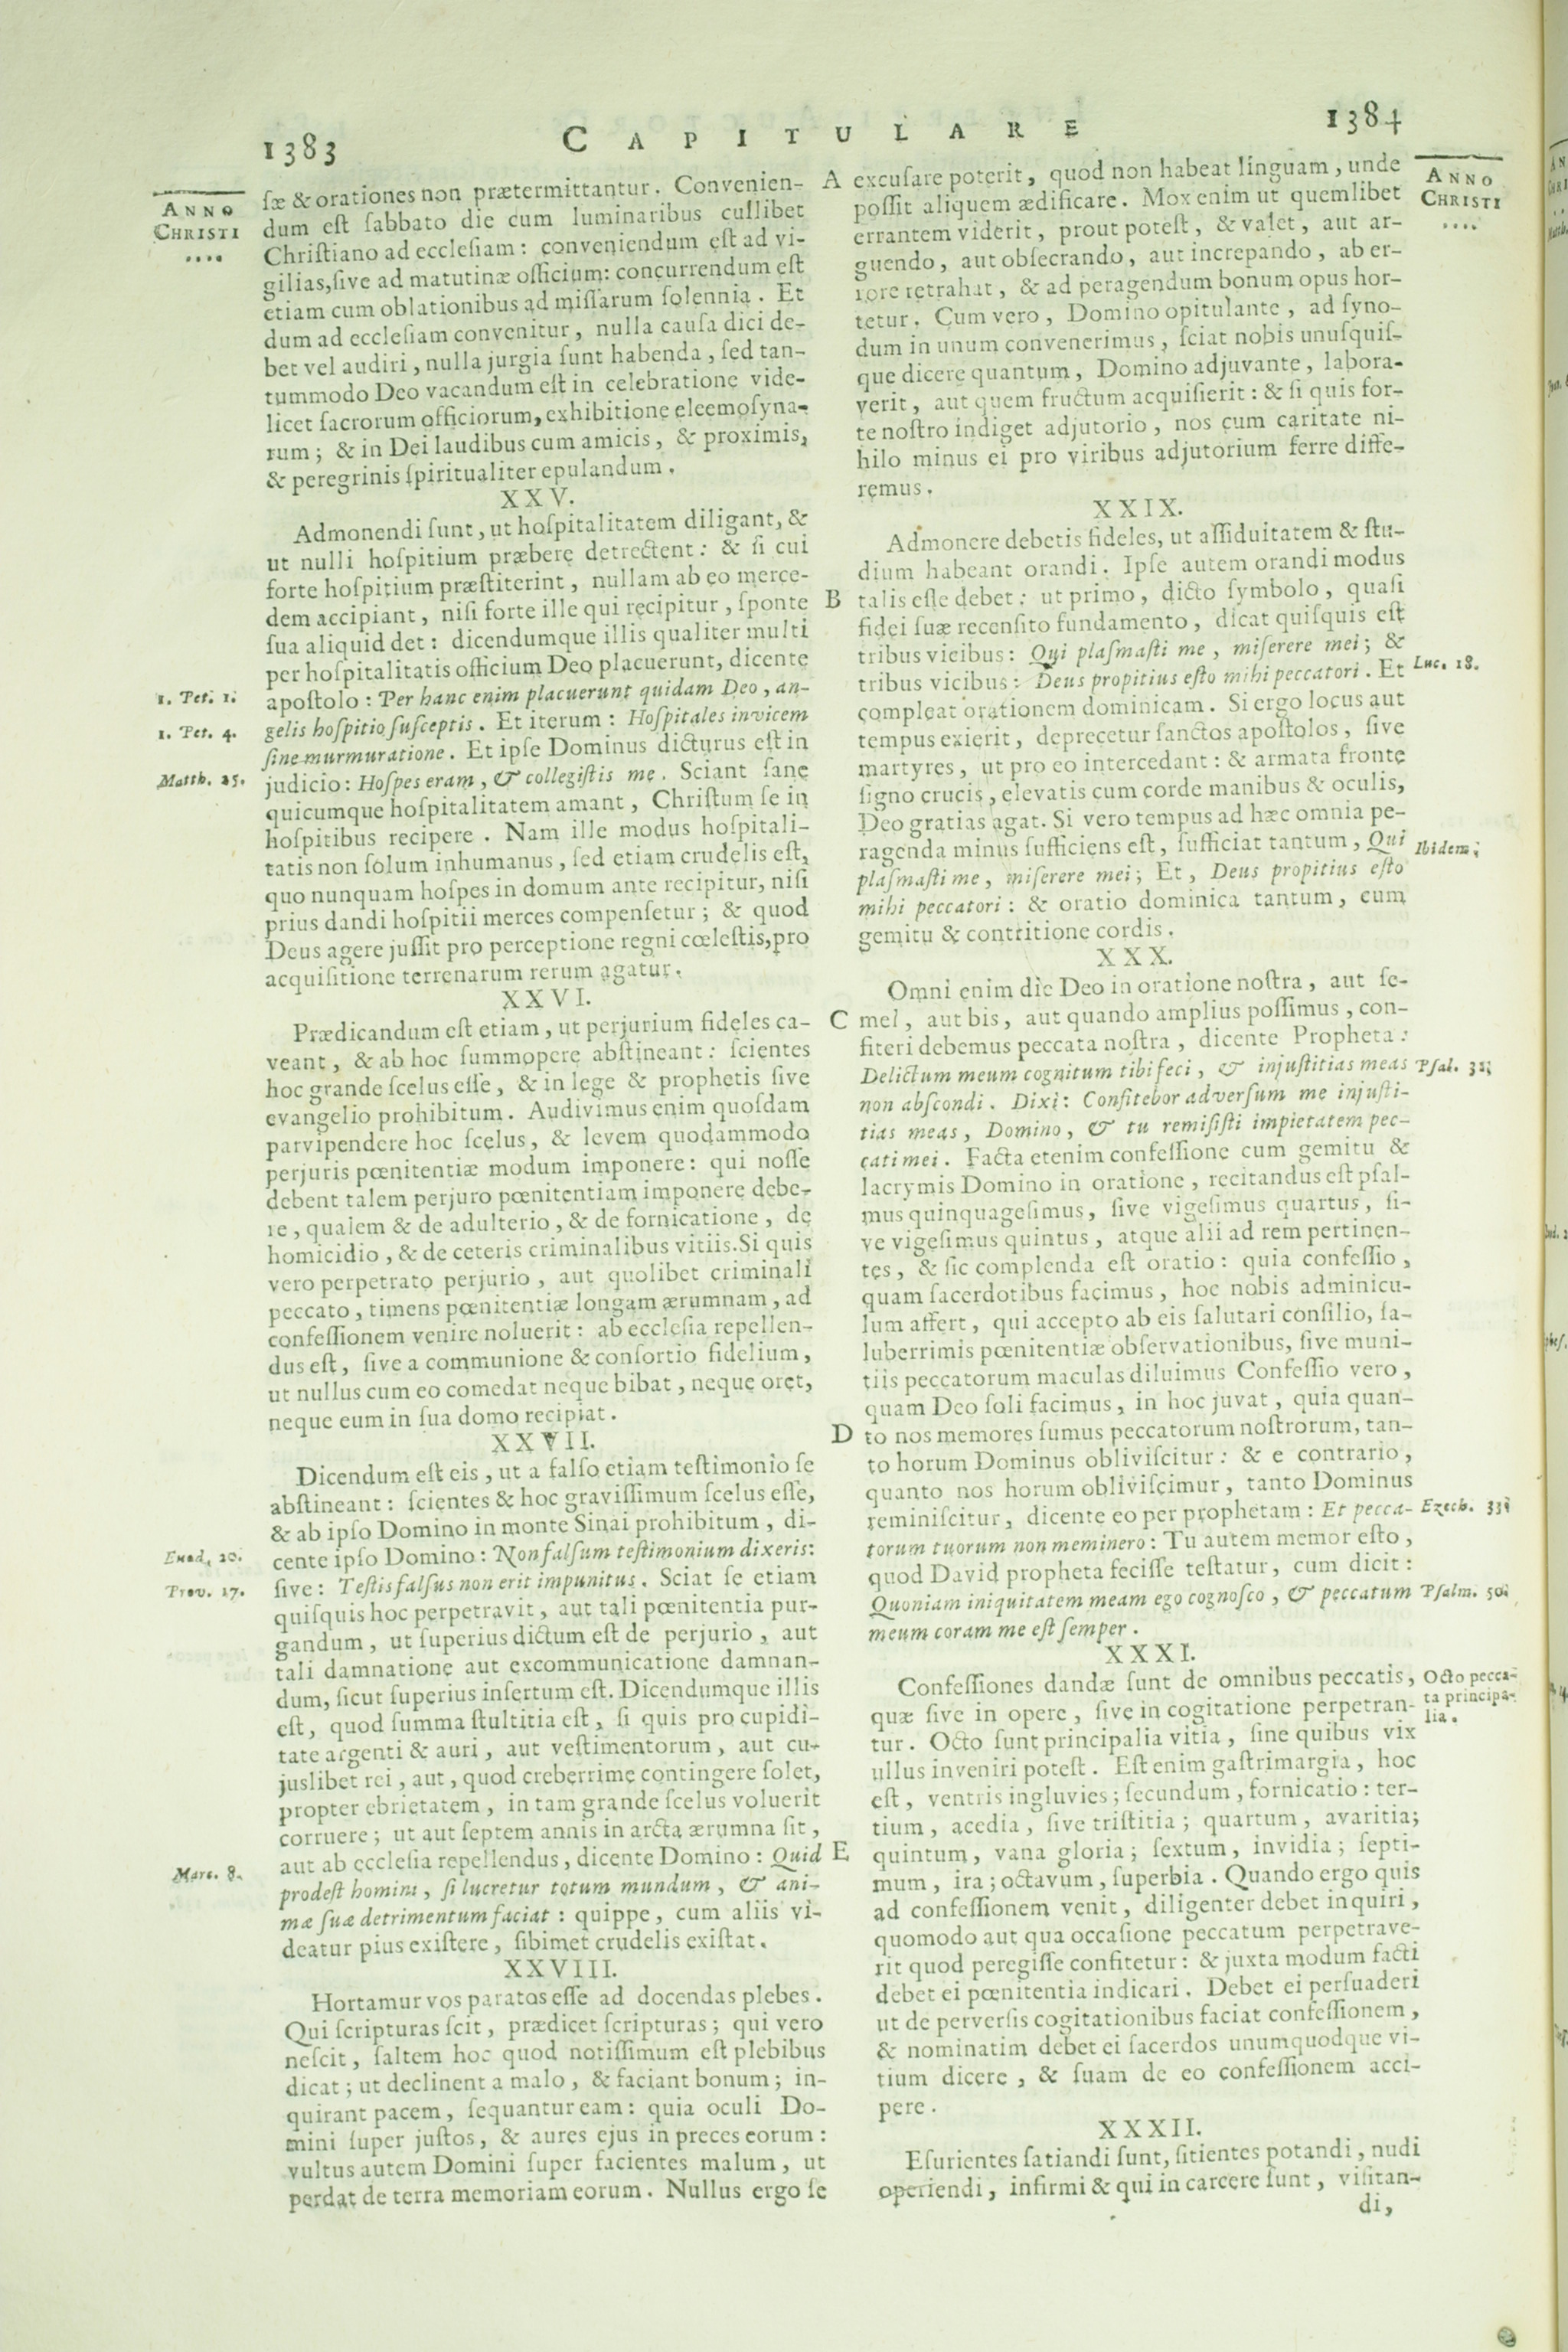 1383
CAPITULARE
1384
ANNO
CHRISTI
....
ſæ & orationes non prætermittantur. Convenien-
dum eſt ſabbato die cum luminaribus cuilibet
Chriſtiano ad eccleſiam: conveniendum eſt ad vi-
gilias, ſive ad matutinæ officium: concurrendum eſt
etiam cum oblationibus ad miſſarum ſolennia. Et
dum ad eccleſiam convenitur, nulla cauſa dici de-
bet vel audiri, nulla jurgia ſunt habenda, ſed tan-
tummodo Deo vacandum eſt in celebratione vide-
licet ſacrorum officiorum, exhibitione eleemoſyna-
rum; & in Dei laudibus cum amicis, & proximis,
& peregrinis ſpiritualiter epulandum.
XXV.
Admonendi ſunt, ut hoſpitalitatem diligant, &
ut nulli hoſpitium præbere detrectent: & ſi cui
forte hoſpitium præſtiterint, nullam ab eo merce-
dem accipiant, niſi forte ille qui recipitur, ſponte
ſua aliquid det: dicendumque illis qualiter multi
per hoſpitalitatis officium Deo placuerunt, dicente
1. Pet. 1.
apoſtolo: Per hanc enim placuerunt quidam Deo, an-
1. Pet. 4.
gelis hoſpitio ſuſceptis. Et iterum: Hoſpitales invicem
ſine murmuratione. Et ipſe Dominus dicturus eſt in
Matth. 25.
judicio: Hoſpes eram, & collegiſtis me. Sciant ſane
quicumque hoſpitalitatem amant, Chriſtum ſe in
hoſpitibus recipere. Nam ille modus hoſpitali-
tatis non ſolum inhumanus, ſed etiam crudelis eſt,
quo nunquam hoſpes in domum ante recipitur, niſi
prius dandi hoſpitii merces compenſetur; & quod
Deus agere juſſit pro perceptione regni cœleſtis, pro
acquiſitione terrenarum rerum agatur.
XXVI.
Prædicandum eſt etiam, ut perjurium fideles ca-
veant, & ab hoc ſummopere abſtineant: ſcientes
hoc grande ſcelus eſſe, & in lege & prophetis ſive
evangelio prohibitum. Audivimus enim quoſdam
parvipendere hoc ſcelus, & levem quodammodo
perjuris pœnitentiæ modum imponere: qui noſſe
debent talem perjuro pœnitentiam imponere debe-
re, qualem & de adulterio, & de fornicatione, de
homicidio, & de ceteris criminalibus vitiis. Si quis
vero perpetrato perjurio, aut quolibet criminali
peccato, timens pœnitentiæ longam ærumnam, ad
confeſſionem venire noluerit: ab eccleſia repellen-
dus eſt, ſive a communione & conſortio fidelium,
ut nullus cum eo comedat neque bibat, neque oret,
neque eum in ſua domo recipiat.
XXVII.
Dicendum eſt eis, ut a falſo etiam teſtimonio ſe
abſtineant: ſcientes & hoc graviſſimum ſcelus eſſe,
& ab ipſo Domino in monte Sinai prohibitum, di-
Exod. 20.
cente ipſo Domino: Non falſum teſtimonium dixeris:
Prov. 17.
ſive: Teſtis falſus non erit impunitus. Sciat ſe etiam
quiſquis hoc perpetravit, aut tali pœnitentia pur-
gandum, ut ſuperius dictum eſt de perjurio, aut
tali damnatione aut excommunicatione damnan-
dum, ſicut ſuperius inſertum eſt. Dicendumque illis
eſt, quod ſumma ſtultitia eſt, ſi quis pro cupidi-
tate argenti & auri, aut veſtimentorum, aut cu-
juslibet rei, aut, quod creberrime contingere ſolet,
propter ebrietatem, in tam grande ſcelus voluerit
corruere; ut aut ſeptem annis in arcta ærumna ſit,
aut ab eccleſia repellendus, dicente Domino: Quid
Marc. 8.
prodeſt homini, ſi lucretur totum mundum, & ani-
mæ ſuæ detrimentum faciat: quippe, cum aliis vi-
deatur pius exiſtere, ſibimet crudelis exiſtat.
XXVIII.
Hortamur vos paratos eſſe ad docendas plebes.
Qui ſcripturas ſcit, prædicet ſcripturas; qui vero
neſcit, ſaltem hoc quod notiſſimum eſt plebibus
dicat; ut declinent a malo, & faciant bonum; in-
quirant pacem, ſequantur eam: quia oculi Do-
mini ſuper juſtos, & aures ejus in preces eorum:
vultus autem Domini ſuper facientes malum, ut
perdat de terra memoriam eorum. Nullus ergo ſe
A
B
C
D
E
ANNO
CHRISTI
....
excuſare poterit, quod non habeat linguam, unde
poſſit aliquem ædificare. Mox enim ut quemlibet
errantem viderit, prout poteſt, & valet, aut ar-
guendo, aut obſecrando, aut increpando, ab er-
rore retrahat, & ad peragendum bonum opus hor-
tetur. Cum vero, Domino opitulante, ad ſyno-
dum in unum convenerimus, ſciat nobis unuſquiſ-
que dicere quantum, Domino adjuvante, labora-
verit, aut quem fructum acquiſierit: & ſi quis for-
te noſtro indiget adjutorio, nos cum caritate ni-
hilo minus ei pro viribus adjutorium ferre diffe-
remus.
XXIX.
Admonere debetis fideles, ut aſſiduitatem & ſtu-
dium habeant orandi. Ipſe autem orandi modus
talis eſſe debet: ut primo, dicto ſymbolo, quaſi
fidei ſuæ recenſito fundamento, dicat quiſquis eſt
tribus vicibus: Qui plaſmaſti me, miſerere mei; &
tribus vicibus: Deus propitius eſto mihi peccatori. Et
Luc. 18.
compleat orationem dominicam. Si ergo locus aut
tempus exierit, deprecetur ſanctos apoſtolos, ſive
martyres, ut pro eo intercedant: & armata fronte
ſigno crucis, elevatis cum corde manibus & oculis,
Deo gratias agat. Si vero tempus ad hæc omnia pe-
ragenda minus ſufficiens eſt, ſufficiat tantum, Qui
Ibidem.
plaſmaſti me, miſerere mei; Et, Deus propitius eſto
mihi peccatori: & oratio dominica tantum, cum
gemitu & contritione cordis.
XXX.
Omni enim die Deo in oratione noſtra, aut ſe-
mel, aut bis, aut quando amplius poſſimus, con-
fiteri debemus peccata noſtra, dicente Propheta:
Delictum meum cognitum tibi feci, & injuſtitias meas
Pſal. 31.
non abſcondi. Dixi: Confitebor adverſum me injuſti-
tias meas, Domino, & tu remiſiſti impietatem pec-
cati mei. Facta etenim confeſſione cum gemitu &
lacrymis Domino in oratione, recitandus eſt pſal-
mus quinquageſimus, ſive vigeſimus quartus, ſi-
ve vigeſimus quintus, atque alii ad rem pertinen-
tes, & ſic complenda eſt oratio: quia confeſſio,
quam ſacerdotibus facimus, hoc nobis adminicu-
lum affert, qui accepto ab eis ſalutari conſilio, ſa-
luberrimis pœnitentiæ obſervationibus, ſive muni-
tiis peccatorum maculas diluimus Confeſſio vero,
quam Deo ſoli facimus, in hoc juvat, quia quan-
to nos memores ſumus peccatorum noſtrorum, tan-
to horum Dominus obliviſcitur: & e contrario,
quanto nos horum obliviſcimur, tanto Dominus
reminiſcitur, dicente eo per prophetam: Et pecca-
Ezech. 33.
torum tuorum non meminero: Tu autem memor eſto,
quod David propheta feciſſe teſtatur, cum dicit:
Quoniam iniquitatem meam ego cognoſco, & peccatum
Pſalm. 50.
meum coram me eſt ſemper.
XXXI.
Confeſſiones dandæ ſunt de omnibus peccatis,
Octo pecca-
ta principa-
lia.
quæ ſive in opere, ſive in cogitatione perpetran-
tur. Octo ſunt principalia vitia, ſine quibus vix
ullus inveniri poteſt. Eſt enim gaſtrimargia, hoc
eſt, ventris ingluvies; ſecundum, fornicatio: ter-
tium, acedia, ſive triſtitia; quartum, avaritia;
quintum, vana gloria; ſextum, invidia; ſepti-
mum, ira; octavum, ſuperbia. Quando ergo quis
ad confeſſionem venit, diligenter debet inquiri,
quomodo aut qua occaſione peccatum perpetrave-
rit quod peregiſſe confitetur: & juxta modum facti
debet ei pœnitentia indicari. Debet ei perſuaderi
ut de perverſis cogitationibus faciat confeſſionem,
& nominatim debet ei ſacerdos unumquodque vi-
tium dicere, & ſuam de eo confeſſionem acci-
pere.
XXXII.
Eſurientes ſatiandi ſunt, ſitientes potandi, nudi
operiendi, infirmi & qui in carcere ſunt, viſitan-
di,